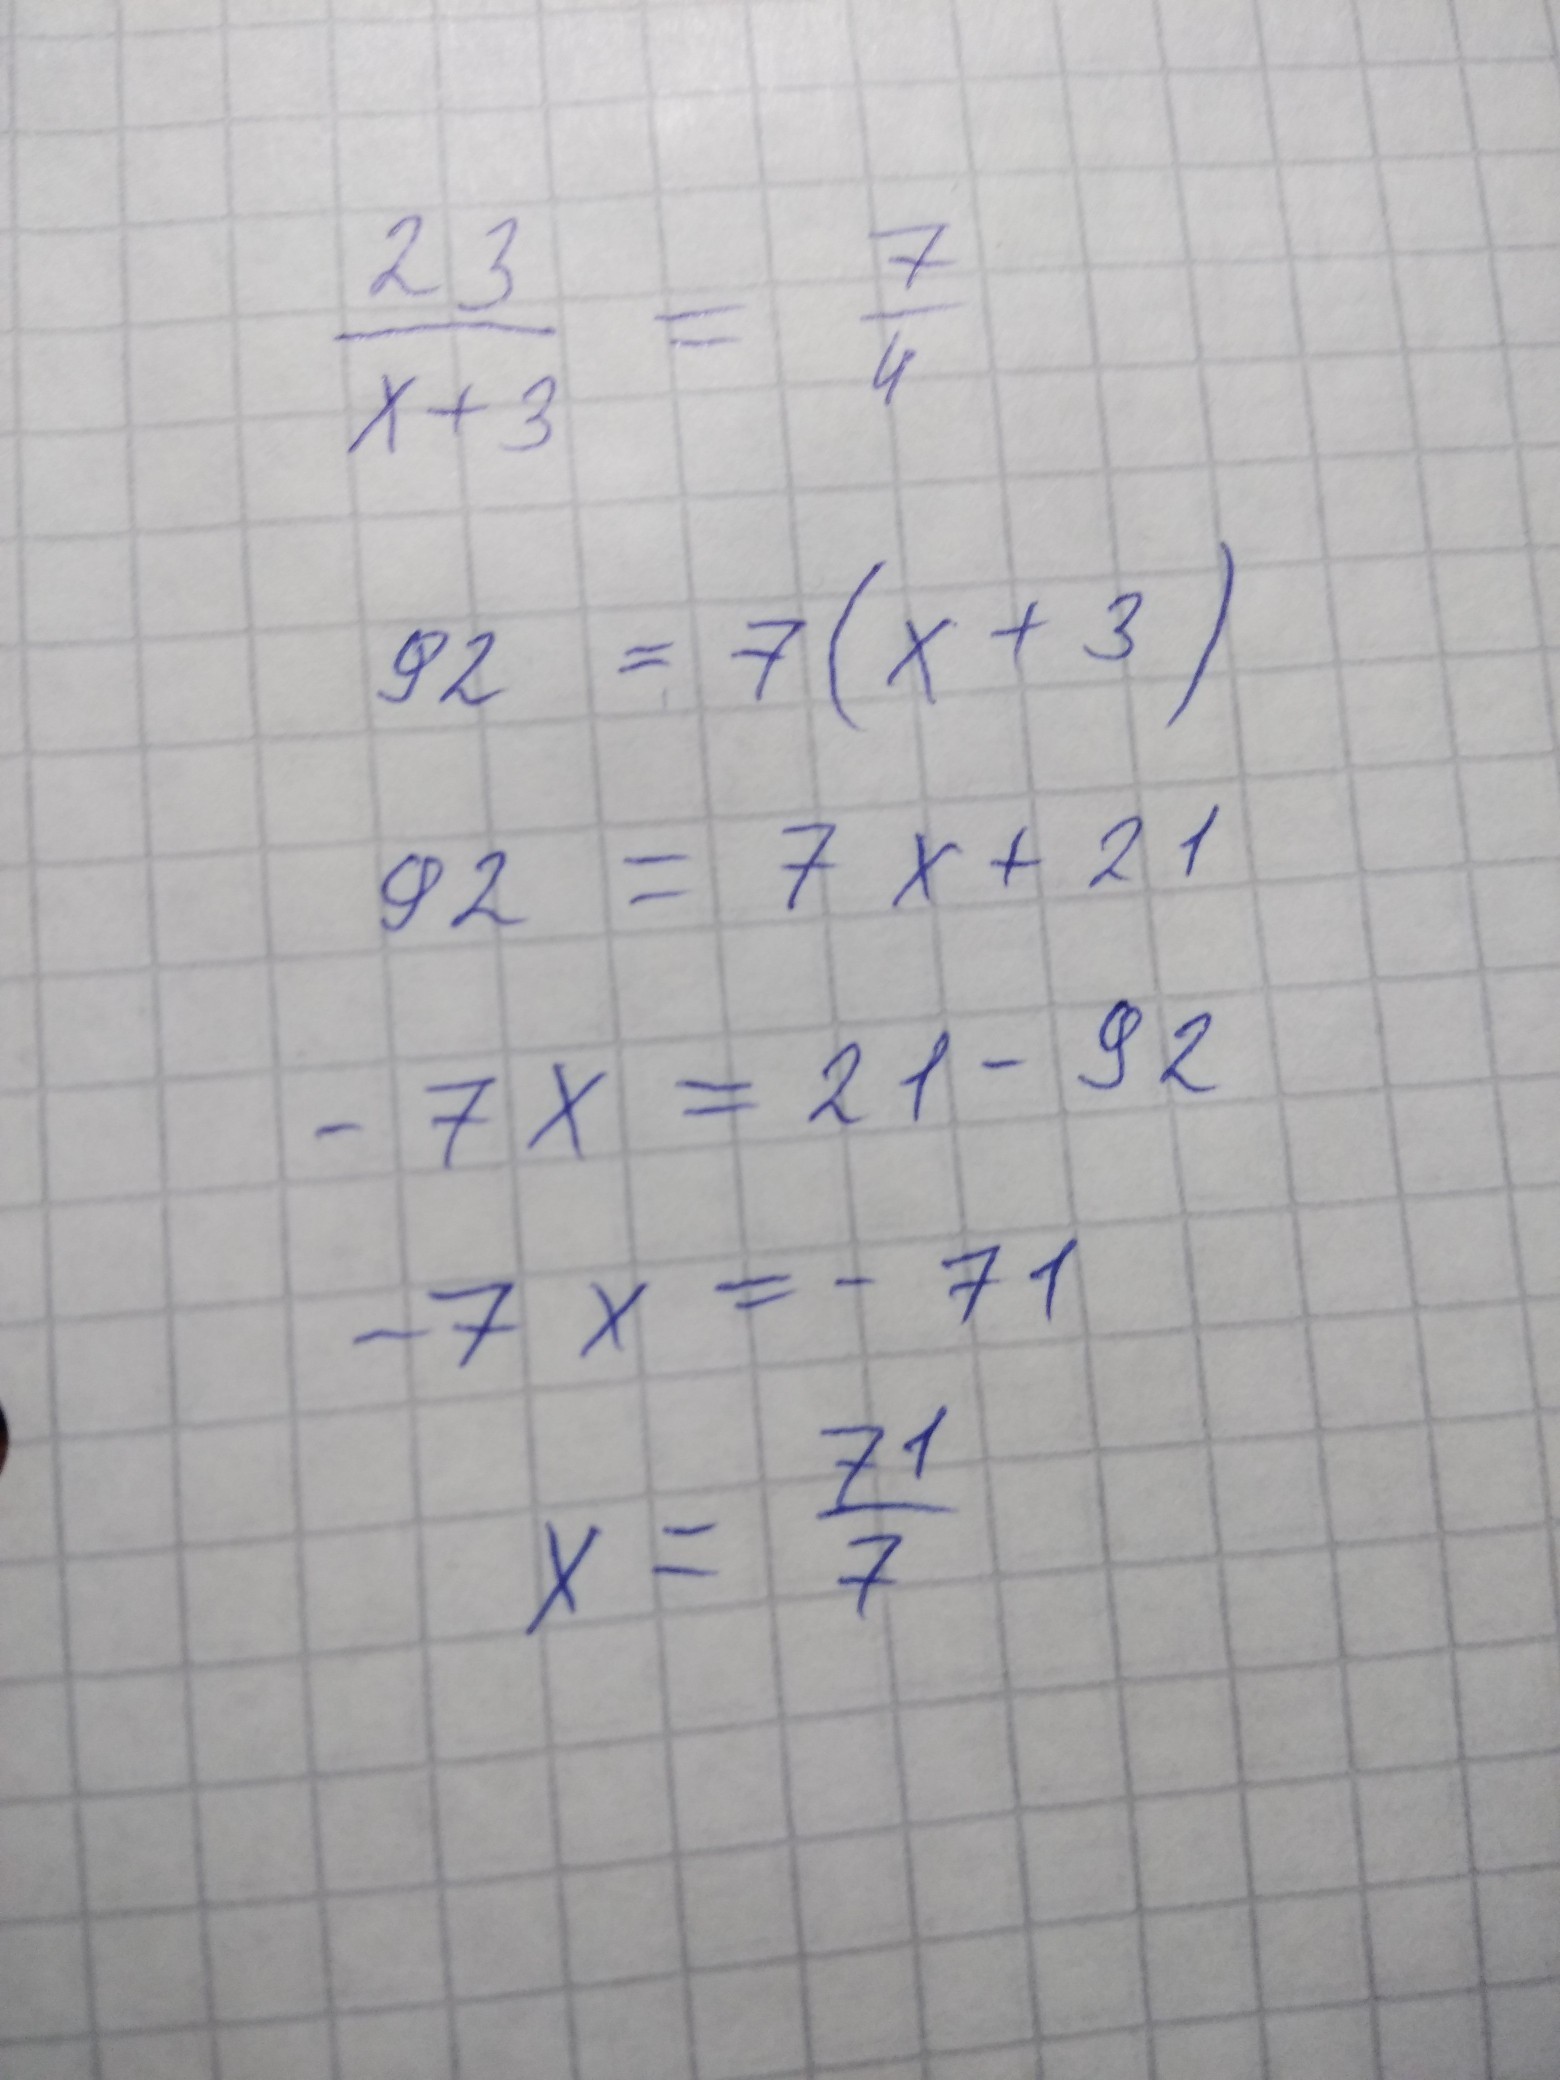 23/(x+3) = 7/4
92 = 7(x+3)
92 = 7x+21
-7x = 21-92
-7x = -71
x = 71/7